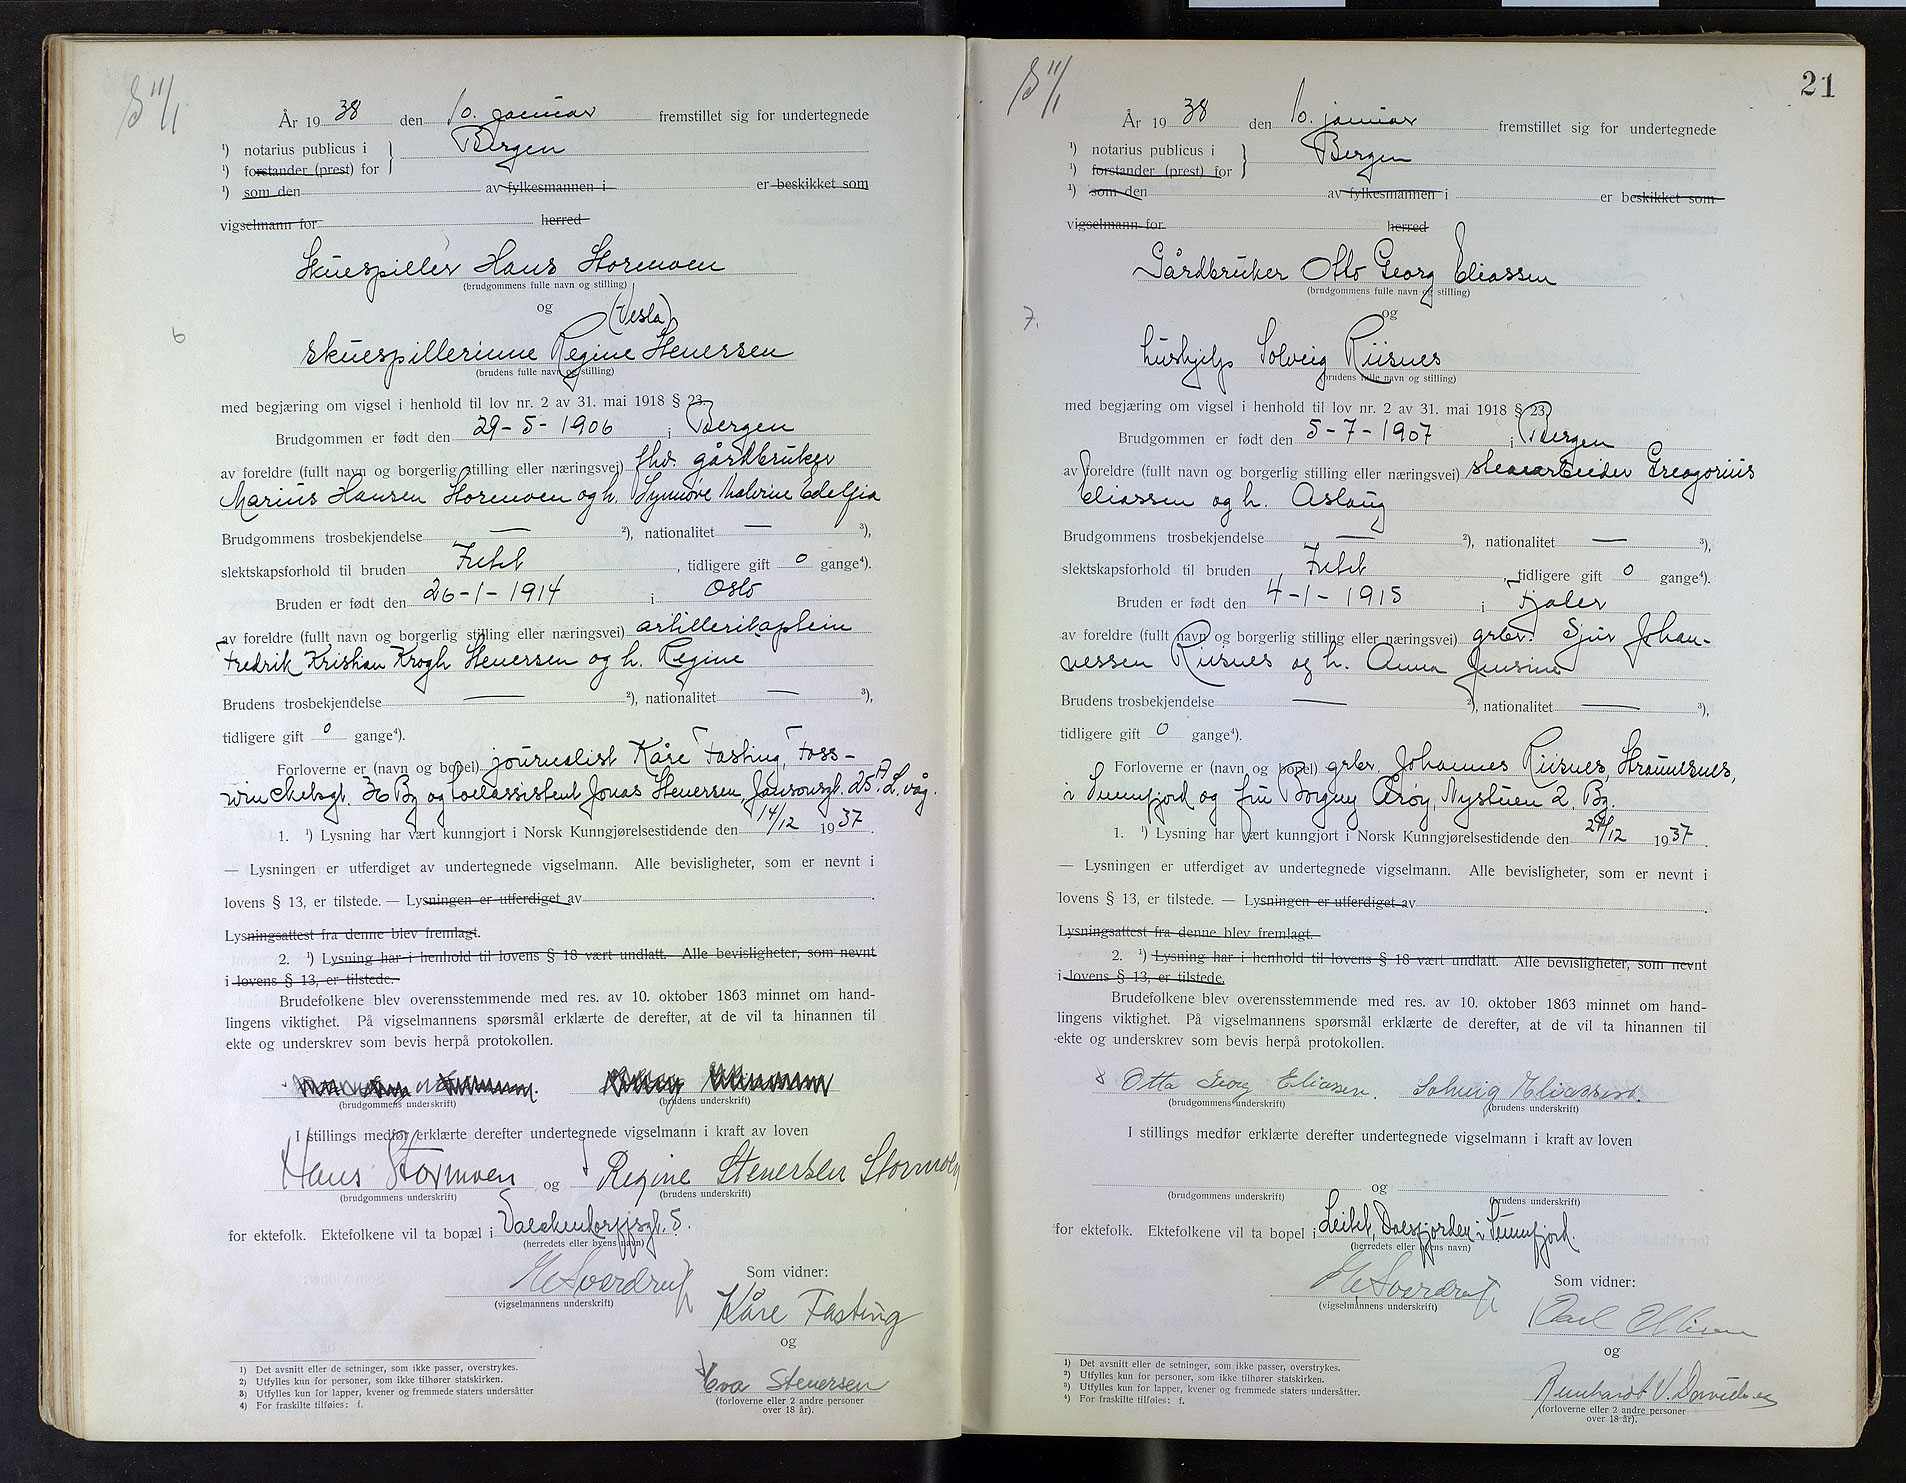 S 11/1
År 1938 den 10. januar fremstillet sig for undertegnede
¹) notarius publicus i } Bergen
¹) forstander (prest) for
¹) som den av fylkesmannen i er beskikket som
vigselmann for herred
Skuespiller Hans Stormoen
(brudgommens fulle navn og stilling)
og (Vesla)
6
skuespillerinne Regine Stenersen
(brudens fulle navn og stilling)
med begjæring om vigsel i henhold til lov nr. 2 av 31. mai 1918 § 23.
Brudgommen er født den 29-5-1906 i Bergen
av foreldre (fullt navn og borgerlig stilling eller næringsvei) fhv. gårdbruker
Marius Hansen Stormoen og h. Synnøve Malerine Edelfia
Brudgommens trosbekjendelse — ²), nationalitet — ³),
slektskapsforhold til bruden Intet, tidligere gift 0 gange⁴).
Bruden er født den 26-1-1914 i Oslo
av foreldre (fullt navn og borgerlig stilling eller næringsvei) artillerikaptein
Fredrik Kristian Krogh Stenersen og h. Regine
Brudens trosbekjendelse — ²), nationalitet — ³),
tidligere gift 0 gange⁴).
Forloverne er (navn og bopel) journalist Kåre Fasting, Foss-
winckelsgt. 36 Bg og tollassistent Jonas Stenersen, Jansonsgt. 25A L.våg.
1. ¹) Lysning har vært kunngjort i Norsk Kunngjørelsestidende den 14/12 1937.
— Lysningen er utferdiget av undertegnede vigselmann. Alle bevisligheter, som er nevnt i
lovens § 13, er tilstede. — Lysningen er utferdiget av
Lysningsattest fra denne blev fremlagt.
2. ¹) Lysning har i henhold til lovens § 18 vært undlatt. Alle bevisligheter, som nevnt
i lovens § 13, er tilstede.
Brudefolkene blev overensstemmende med res. av 10. oktober 1863 minnet om hand-
lingens viktighet. På vigselmannens spørsmål erklærte de derefter, at de vil ta hinannen til
ekte og underskrev som bevis herpå protokollen.
(brudgommens underskrift) (brudens underskrift)
I stillings medfør erklærte derefter undertegnede vigselmann i kraft av loven
Hans Stormoen og Regine Stenersen Stormoen
(brudgommens underskrift) (brudens underskrift)
for ektefolk. Ektefolkene vil ta bopæl i Valckendorffsgt. 5.
(herredets eller byens navn)
Sverdrup Som vidner:
(vigselmannens underskrift) Kåre Fasting
og
Eva Stenersen
(forloverne eller 2 andre personer
over 18 år).
¹) Det avsnitt eller de setninger, som ikke passer, overstrykes.
²) Utfylles kun for personer, som ikke tilhører statskirken.
³) Utfylles kun for lapper, kvener og fremmede staters undersåtter
⁴) For fraskilte tilføies: f.
S 11/1
21
År 1938 den 10. januar fremstillet sig for undertegnede
¹) notarius publicus i } Bergen
¹) forstander (prest) for
¹) som den av fylkesmannen i er beskikket som
vigselmann for herred
Gårdbruker Otto Georg Eliassen
(brudgommens fulle navn og stilling)
og
7.
hushjelp Solveig Riisnes
(brudens fulle navn og stilling)
med begjæring om vigsel i henhold til lov nr. 2 av 31. mai 1918 § 23.
Brudgommen er født den 5-7-1907 i Bergen
av foreldre (fullt navn og borgerlig stilling eller næringsvei) stenarbeider Greogorius
Eliassen og h. Aslaug
Brudgommens trosbekjendelse — ²), nationalitet — ³),
slektskapsforhold til bruden Intet, tidligere gift 0 gange⁴).
Bruden er født den 4-1-1915 i Fjaler
av foreldre (fullt navn og borgerlig stilling eller næringsvei) grbr. Sjur Johan-
nessen Riisnes og h. Anna Jensine
Brudens trosbekjendelse — ²), nationalitet — ³),
tidligere gift 0 gange⁴).
Forloverne er (navn og bopel) grbr. Johannes Riisnes, Straumsnes,
i Sunnfjord og fru Borgny Arøy, Nystuen 2, Bg.
1. ¹) Lysning har vært kunngjort i Norsk Kunngjørelsestidende den /12 1937.
— Lysningen er utferdiget av undertegnede vigselmann. Alle bevisligheter, som er nevnt i
lovens § 13, er tilstede. — Lysningen er utferdiget av
Lysningsattest fra denne blev fremlagt.
2. ¹) Lysning har i henhold til lovens § 18 vært undlatt. Alle bevisligheter, som nevnt
i lovens § 13, er tilstede.
Brudefolkene blev overensstemmende med res. av 10. oktober 1863 minnet om hand-
lingens viktighet. På vigselmannens spørsmål erklærte de derefter, at de vil ta hinannen til
ekte og underskrev som bevis herpå protokollen.
x Otto Georg Eliassen. Solveig Eliassen.
(brudgommens underskrift) (brudens underskrift)
I stillings medfør erklærte derefter undertegnede vigselmann i kraft av loven
og
(brudgommens underskrift) (brudens underskrift)
for ektefolk. Ektefolkene vil ta bopel i Leitet, Dalsfjorden i Sunnfjord.
(herredets eller byens navn)
Sverdrup Som vidner:
(vigselmannens underskrift) Karl
og
Reinhardt V. Davidsen
(forloverne eller 2 andre personer
over 18 år).
¹) Det avsnitt eller de setninger, som ikke passer, overstrykes.
²) Utfylles kun for personer, som ikke tilhører statskirken.
³) Utfylles kun for lapper, kvener og fremmede staters undersåtter.
⁴) For fraskilte tilføies: f.